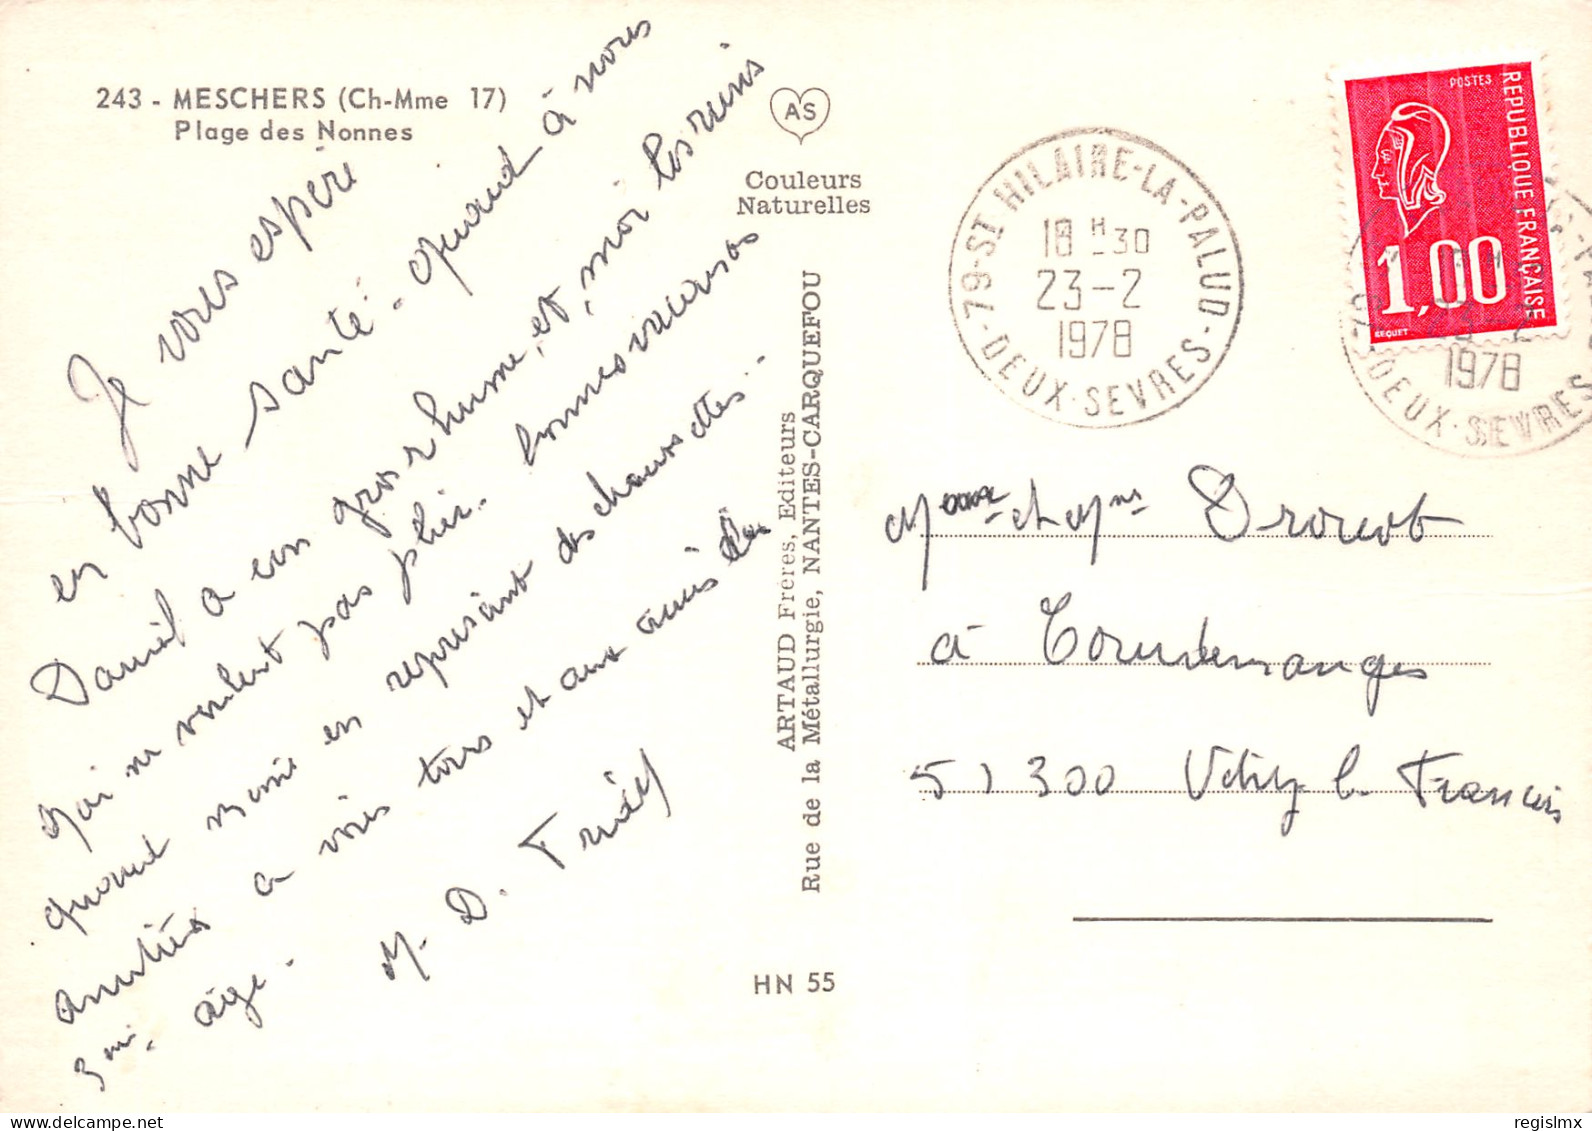 243 - MESCHERS (Ch-Mme 17)
Plage des Nonnes
Je vous espère
en bonne santé - quand à nous
Daniel a un gros rhume, et, moi les reins
qui ne veulent pas plier. bonnes vacances
quand même en reprisant des chaussettes.
amitiés à vous tous et aux amis du
3ème âge.
M. D.
AS
Couleurs
Naturelles
ARTAUD Frères, Editeurs
Rue de la Métallurgie, NANTES-CARQUEFOU
HN 55
79-ST HILAIRE-LA-PALUD
18 H 30
23-2
1978
DEUX-SEVRES
POSTES
REPUBLIQUE FRANÇAISE
1,00
BEQUET
1978
DEUX-SEVRES
et Mr Drouot
à Courdemanges
51300 Vitry le Francois
Delcampe.net
regislmx